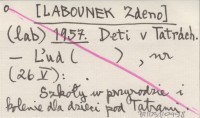 [LABOUNEK Zdeno]
(lab) 1957. Deti v Tatrách.
— L'ud ( ), nr
(26 V): .
Szkoły w przyrodzie i
kolenie dla dzieci pod Tatrami.